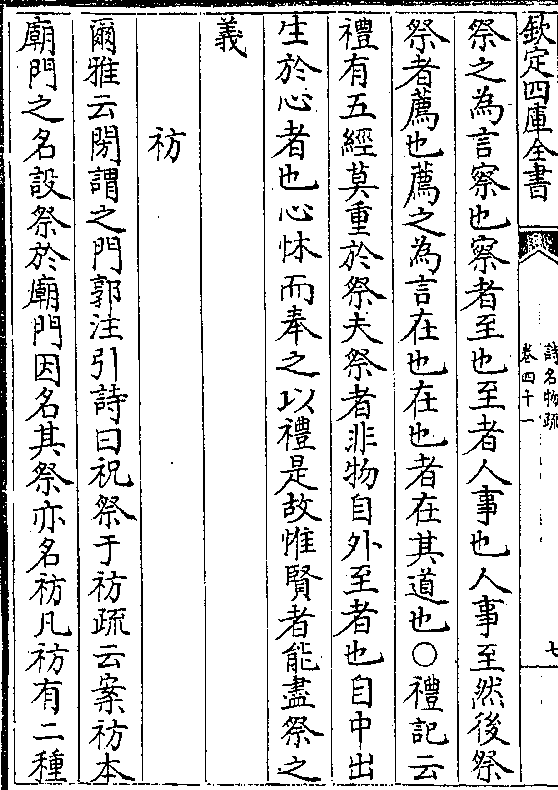 欽定四庫全書
詩名物疏
卷四十一
七
祭之為言察也察者至也至者人事也人事至然後祭
祭者薦也薦之為言在也在也者在其道也○禮記云
禮有五經莫重於祭夫祭者非物自外至者也自中出
生於心者也心怵而奉之以禮是故惟賢者能盡祭之
義
祊
爾雅云閍謂之門郭注引詩曰祝祭于祊疏云案祊本
廟門之名設祭於廟門因名其祭亦名祊凡祊有二種